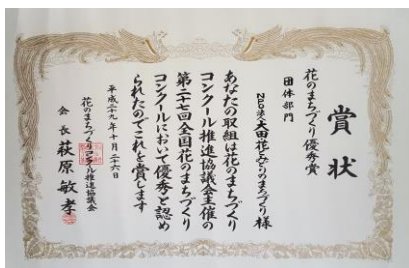 賞状
花のまちづくり優秀賞
団体部門
NPO法人大田花とみどりのまちづくり様
あなたの取組は花のまちづくり
コンクール推進協議会主催の
第二十七回全国花のまちづくり
コンクールにおいて優秀と認め
られたのでこれを賞します
平成二十九年十月二十六日
花のまちづくりコンクール推進協議会
会長 萩原敏孝